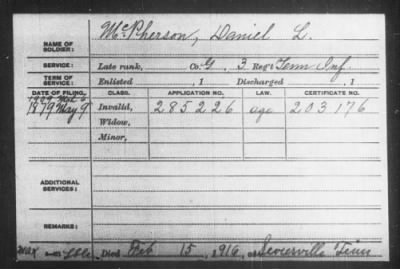 McPherson, Daniel L.
NAME OF SOLDIER:
SERVICE: Late rank, Co. G, 3 Reg't Tenn Inf.
TERM OF SERVICE: Enlisted , 1 Discharged , 1
DATE OF FILING. CLASS. APPLICATION NO. LAW. CERTIFICATE NO.
1879 May 9 Invalid, 285226 age 203176
Widow,
Minor,
ADDITIONAL SERVICES:
REMARKS:
Died Feb 15, 1916, at Sevierville Tenn